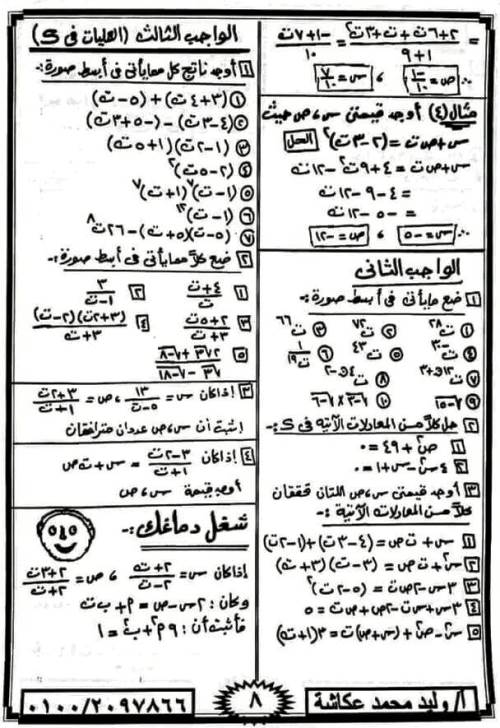 = (٢+٦ت+ت+٣ت²)/(٩+١) = (-١+٧ت)/١٠
∴ س = ٧/١٠ ، ص = -١/١٠
مثال (٤) أوجد قيمتى س ، ص حيث
س + ص ت = (٢-٣ت)² الحل
س + ص ت = ٤ + ٩ت² - ١٢ت
= ٤ - ٩ - ١٢ت
= -٥ - ١٢ت
∴ س = -٥ ، ص = -١٢
الواجب الثانى
١ ضع مايأتى فى أبسط صورة :-
١) ت٢٨ ٢) ت٧٢ ٣) ت٦٦
٤) ت-٣٠ ٥) ت٤٣ ٦) ١/ت١٩
٢ حل كلاً من المعادلات الآتية فى ك :-
١ س² + ٤٩ = ٠
٢ ٤س² - س + ١ = ٠
٣ أوجد قيمتى س ، ص اللتان تحققان
كلاً من المعادلات الآتية :-
١ س + ت ص = (٤-٣ت) + (١-٢ت)
٢ س + ت ص = (٣-ت) (٣+ت)
٣ ٣س - ٢ص ت = (٥-٢ت)²
٤ ٣س + س ت - ٢ص + ص ت = ٥
٥ س² - ص² + (س+ص)ت = ٣(١+ت)
الواجب الثالث (العمليات فى ك)
١ أوجد ناتج كل ممايأتى فى أبسط صورة :-
١) (٣+٤ت) + (٥-ت)
٢) (٤-٣ت) - (-٥+٣ت)
٣) (١-٢ت) (١+٥ت)
٤) (٢-٥ت)²
٥) (١-ت)٧ (١+ت)٧
٦) (١-ت)١٢
٧) (٥-ت)(٥+ت) - ٢٦ت٨
٢ ضع كلاً ممايأتى فى أبسط صورة :-
١ (٤+ت)/ت ٢ ٣/(١-ت)
٣ (٢+٥ت)/(٣+ت) ٤ (٣+٢ت)(٢-ت)/(٣+ت)
٣ إذاكان س = ١٣/(٥-ت) ، ص = (٣+٢ت)/(١+ت)
إثبت أن س ، ص عددان مترافقان
٤ إذاكان (٣-٢ت)/(١+ت) = س + ت ص
أوجد قيمة س ، ص
شغل دماغك :-
إذاكان س = (٢+ت)/(٢-ت) ، ص = (٢+٣ت)/(٢+ت)
وكان : ٢س - ص = م + ب ت
فأثبت أن : ٩م² + ب² = ١
أ/ وليد محمد عكاشة
٨
٠١٠٠/٢٠٩٧٨٦٦